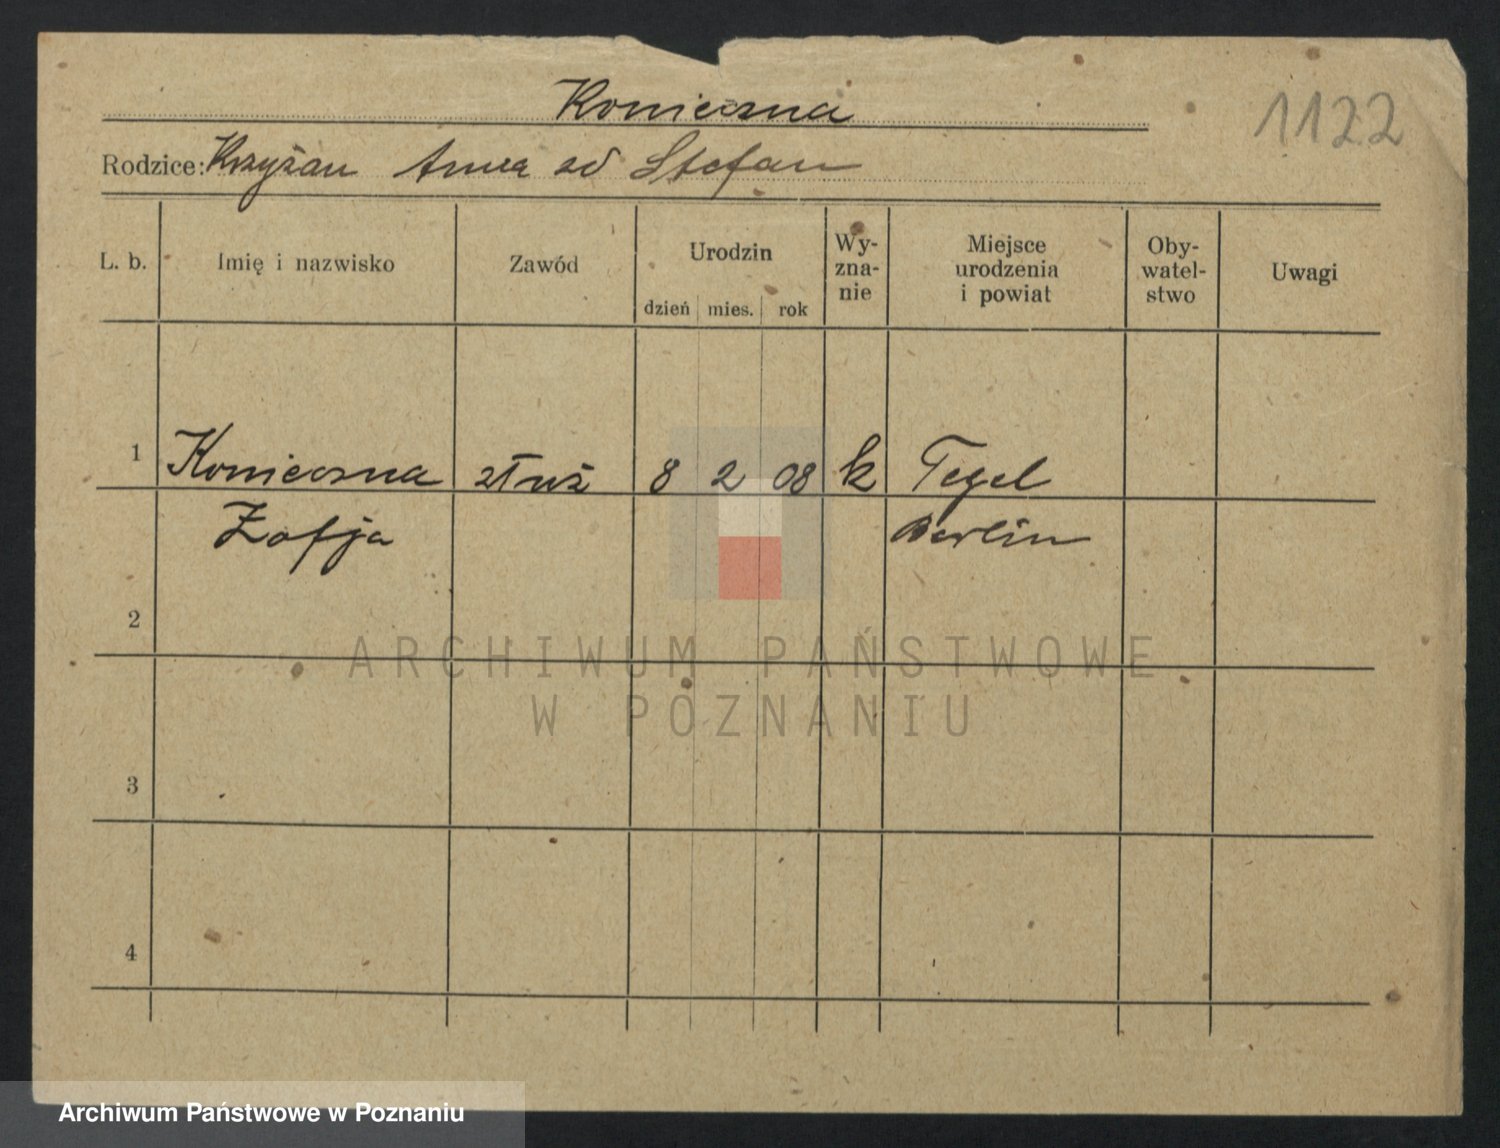 Konieczna
1122
Rodzice: Krzyżan Anna od Stefan
L. b. Imię i nazwisko Zawód Urodzin dzień mies. rok Wy-zna-nie Miejsce urodzenia i powiat Oby-watel-stwo Uwagi
1 Konieczna służ 8 2 08 k Tegel
Zofja Berlin
2
3
4
ARCHIWUM PAŃSTWOWE
W POZNANIU
Archiwum Państwowe w Poznaniu